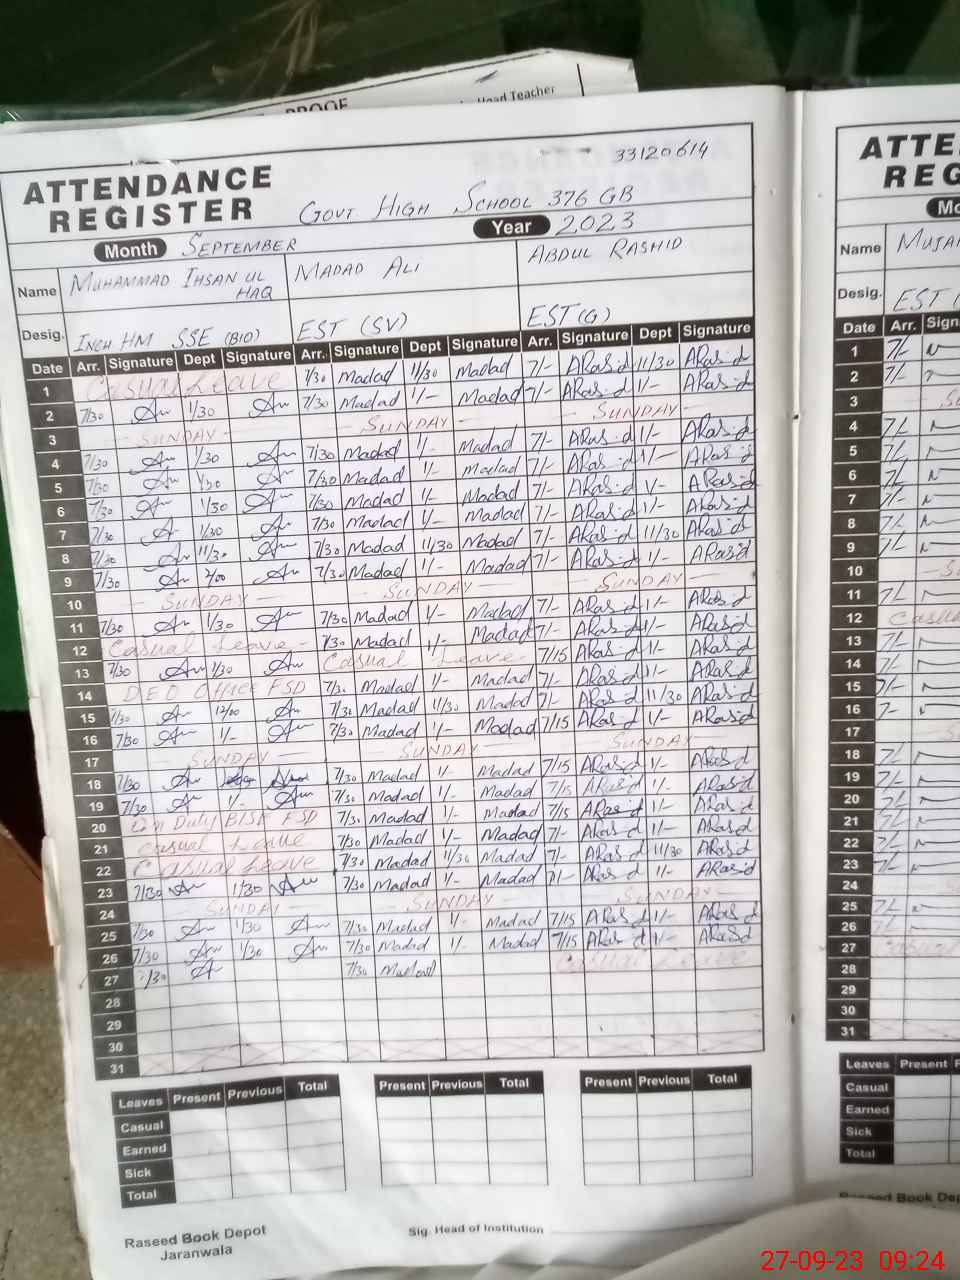 PROOF
Head Teacher
33120614
ATTENDANCE
REGISTER
GOVT HIGH SCHOOL 376 GB
Month SEPTEMBER Year 2023
Name MUHAMMAD IHSAN UL HAQ MADAD ALI ABDUL RASHID
Desig. INCH HM SSE (BIO) EST (SV) EST (G)
Date Arr. Signature Dept Signature Arr. Signature Dept Signature Arr. Signature Dept Signature
1 Casual Leave 7/30 Madad 11/30 Madad 7/- ARasid 11/30 ARasid
2 7/30 1/30 7/30 Madad 1/- Madad 7/- ARasid 1/- ARasid
3 SUNDAY SUNDAY SUNDAY
4 7/30 1/30 7/30 Madad 1/- Madad 7/- ARasid 1/- ARasid
5 7/30 1/30 7/30 Madad 1/- Madad 7/- ARasid 1/- ARasid
6 7/30 1/30 7/30 Madad 1/- Madad 7/- ARasid 1/- ARasid
7 7/30 1/30 7/30 Madad 1/- Madad 7/- ARasid 1/- ARasid
8 7/30 11/30 7/30 Madad 11/30 Madad 7/- ARasid 11/30 ARasid
9 7/30 2/00 7/30 Madad 1/- Madad 7/- ARasid 1/- ARasid
10 SUNDAY SUNDAY SUNDAY
11 7/30 1/30 7/30 Madad 1/- Madad 7/- ARasid 1/- ARasid
12 Casual Leave 7/30 Madad 1/- Madad 7/- ARasid 1/- ARasid
13 7/30 1/30 Casual Leave 7/15 ARasid 1/- ARasid
14 DEO OFFICE FSD 7/30 Madad 1/- Madad 7/- ARasid 1/- ARasid
15 7/30 12/00 7/30 Madad 11/30 Madad 7/- ARasid 11/30 ARasid
16 7/30 1/- 7/30 Madad 1/- Madad 7/15 ARasid 1/- ARasid
17 SUNDAY SUNDAY SUNDAY
18 7/30 7/30 Madad 1/- Madad 7/15 ARasid 1/- ARasid
19 7/30 1/- 7/30 Madad 1/- Madad 7/15 ARasid 1/- ARasid
20 On Duty BISE FSD 7/30 Madad 1/- Madad 7/15 ARasid 1/- ARasid
21 Casual Leave 7/30 Madad 1/- Madad 7/- ARasid 1/- ARasid
22 Casual Leave 7/30 Madad 11/30 Madad 7/- ARasid 11/30 ARasid
23 7/30 1/30 7/30 Madad 1/- Madad 7/- ARasid 1/- ARasid
24 SUNDAY SUNDAY SUNDAY
25 7/30 1/30 7/30 Madad 1/- Madad 7/15 ARasid 1/- ARasid
26 7/30 1/30 7/30 Madad 1/- Madad 7/15 ARasid 1/- ARasid
27 7/30 7/30 Madad Casual Leave
28
29
30
31
Leaves Present Previous Total Present Previous Total Present Previous Total
Casual
Earned
Sick
Total
Raseed Book Depot
Jaranwala
Sig. Head of Institution
ATTE
REG
Mo
Name MUJA
Desig. EST
Date Arr. Sign
1 7/-
2 7/-
3
4 7/-
5 7/-
6 7/-
7 7/-
8 7/-
9 7/-
10
11 7/-
12 Casua
13 7/-
14 7/-
15 7/-
16 7/-
17
18 7/-
19 7/-
20 7/-
21 7/-
22 7/-
23 7/-
24
25 7/-
26 7/-
27 Casual
28
29
30
31
Leaves Present
Casual
Earned
Sick
Total
Raseed Book Dep
27-09-23 09:24